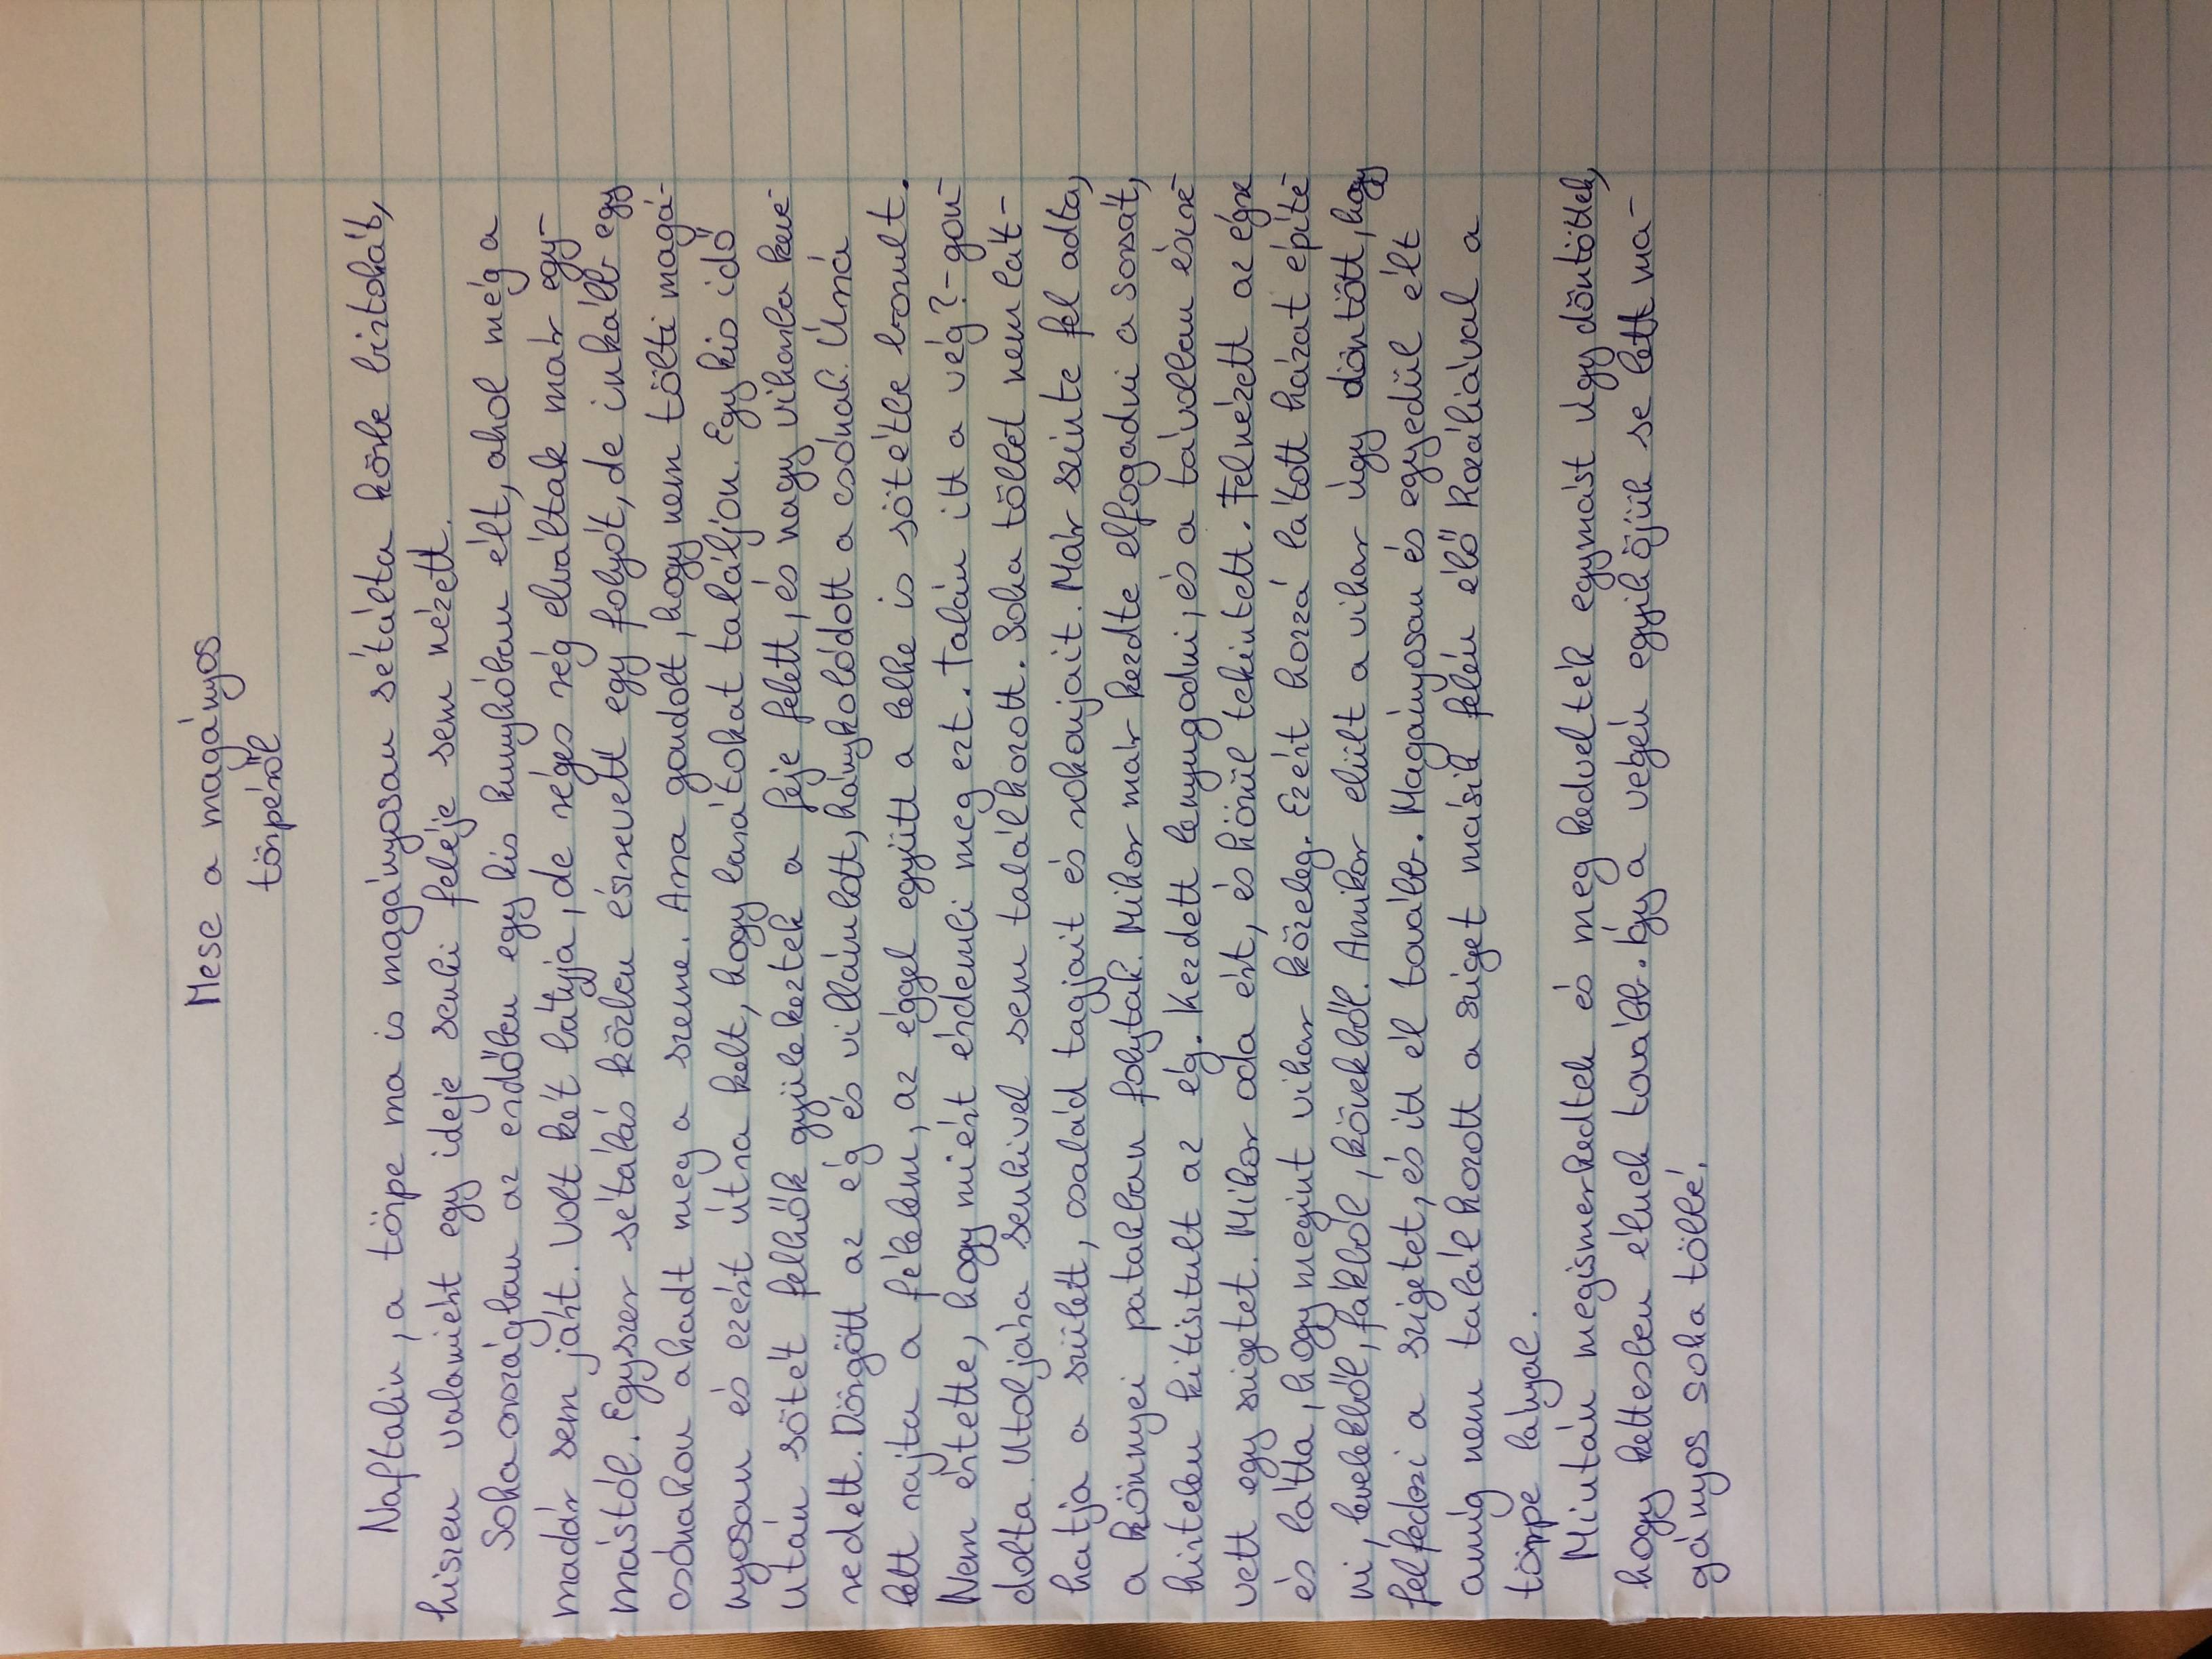 Mese a magányos
törpéről
Naftalin, a törpe ma is magányosan sétálta körbe birtokát,
hiszen valamiért egy ideje senki feléje sem nézett.
Sohaországban az erdőben egy kis kunyhóban élt, ahol még a
madár sem járt. Volt két bátyja, de réges rég elváltak már egy-
mástól. Egyszer sétálás közben észrevett egy folyót, de inkább egy
csónakon akadt meg a szeme. Arra gondolt, hogy nem tölti magá-
nyosan és ezért útra kelt, hogy barátokat találjon. Egy kis idő
után sötét felhők gyülekeztek a feje felett, és nagy viharba keve-
redett. Dörgött az ég és villámlott, hánykolódott a csónak. Úrrá
lett rajta a félelem, az éggel együtt a lelke is sötétbe borult.
Nem értette, hogy miért érdemli meg ezt. Talán itt a vég? - gon-
dolta. Utoljára senkivel sem találkozott. Soha többet nem lát-
hatja a születt, család tagjait és rokonjait. Már szinte fel adta,
a könnyei patakban folytak. Mikor már kezdte elfogadni a sorsát,
hirtelen kitisztult az ég. Kezdett lenyugodni, és a távolban észre
vett egy szigetet. Mikor oda ért, és körül tekintett. Felnézett az égre
és látta, hogy megint vihar közeleg. Ezért hozzá látott házat építe-
ni, levelekből, fákból, kövekből. Amikor elült a vihar úgy döntött, hogy
felfedezi a szigetet, és itt él tovább. Magányosan és egyedül élt
amíg nem találkozott a sziget másik felén élő Rozáliával a
törpe lányal.
Miután megismerkedtek és meg kedvelték egymást úgy döntöttek,
hogy kettesben élnek tovább. Így a végén egyikőjük se lett ma-
gányos soha többé.